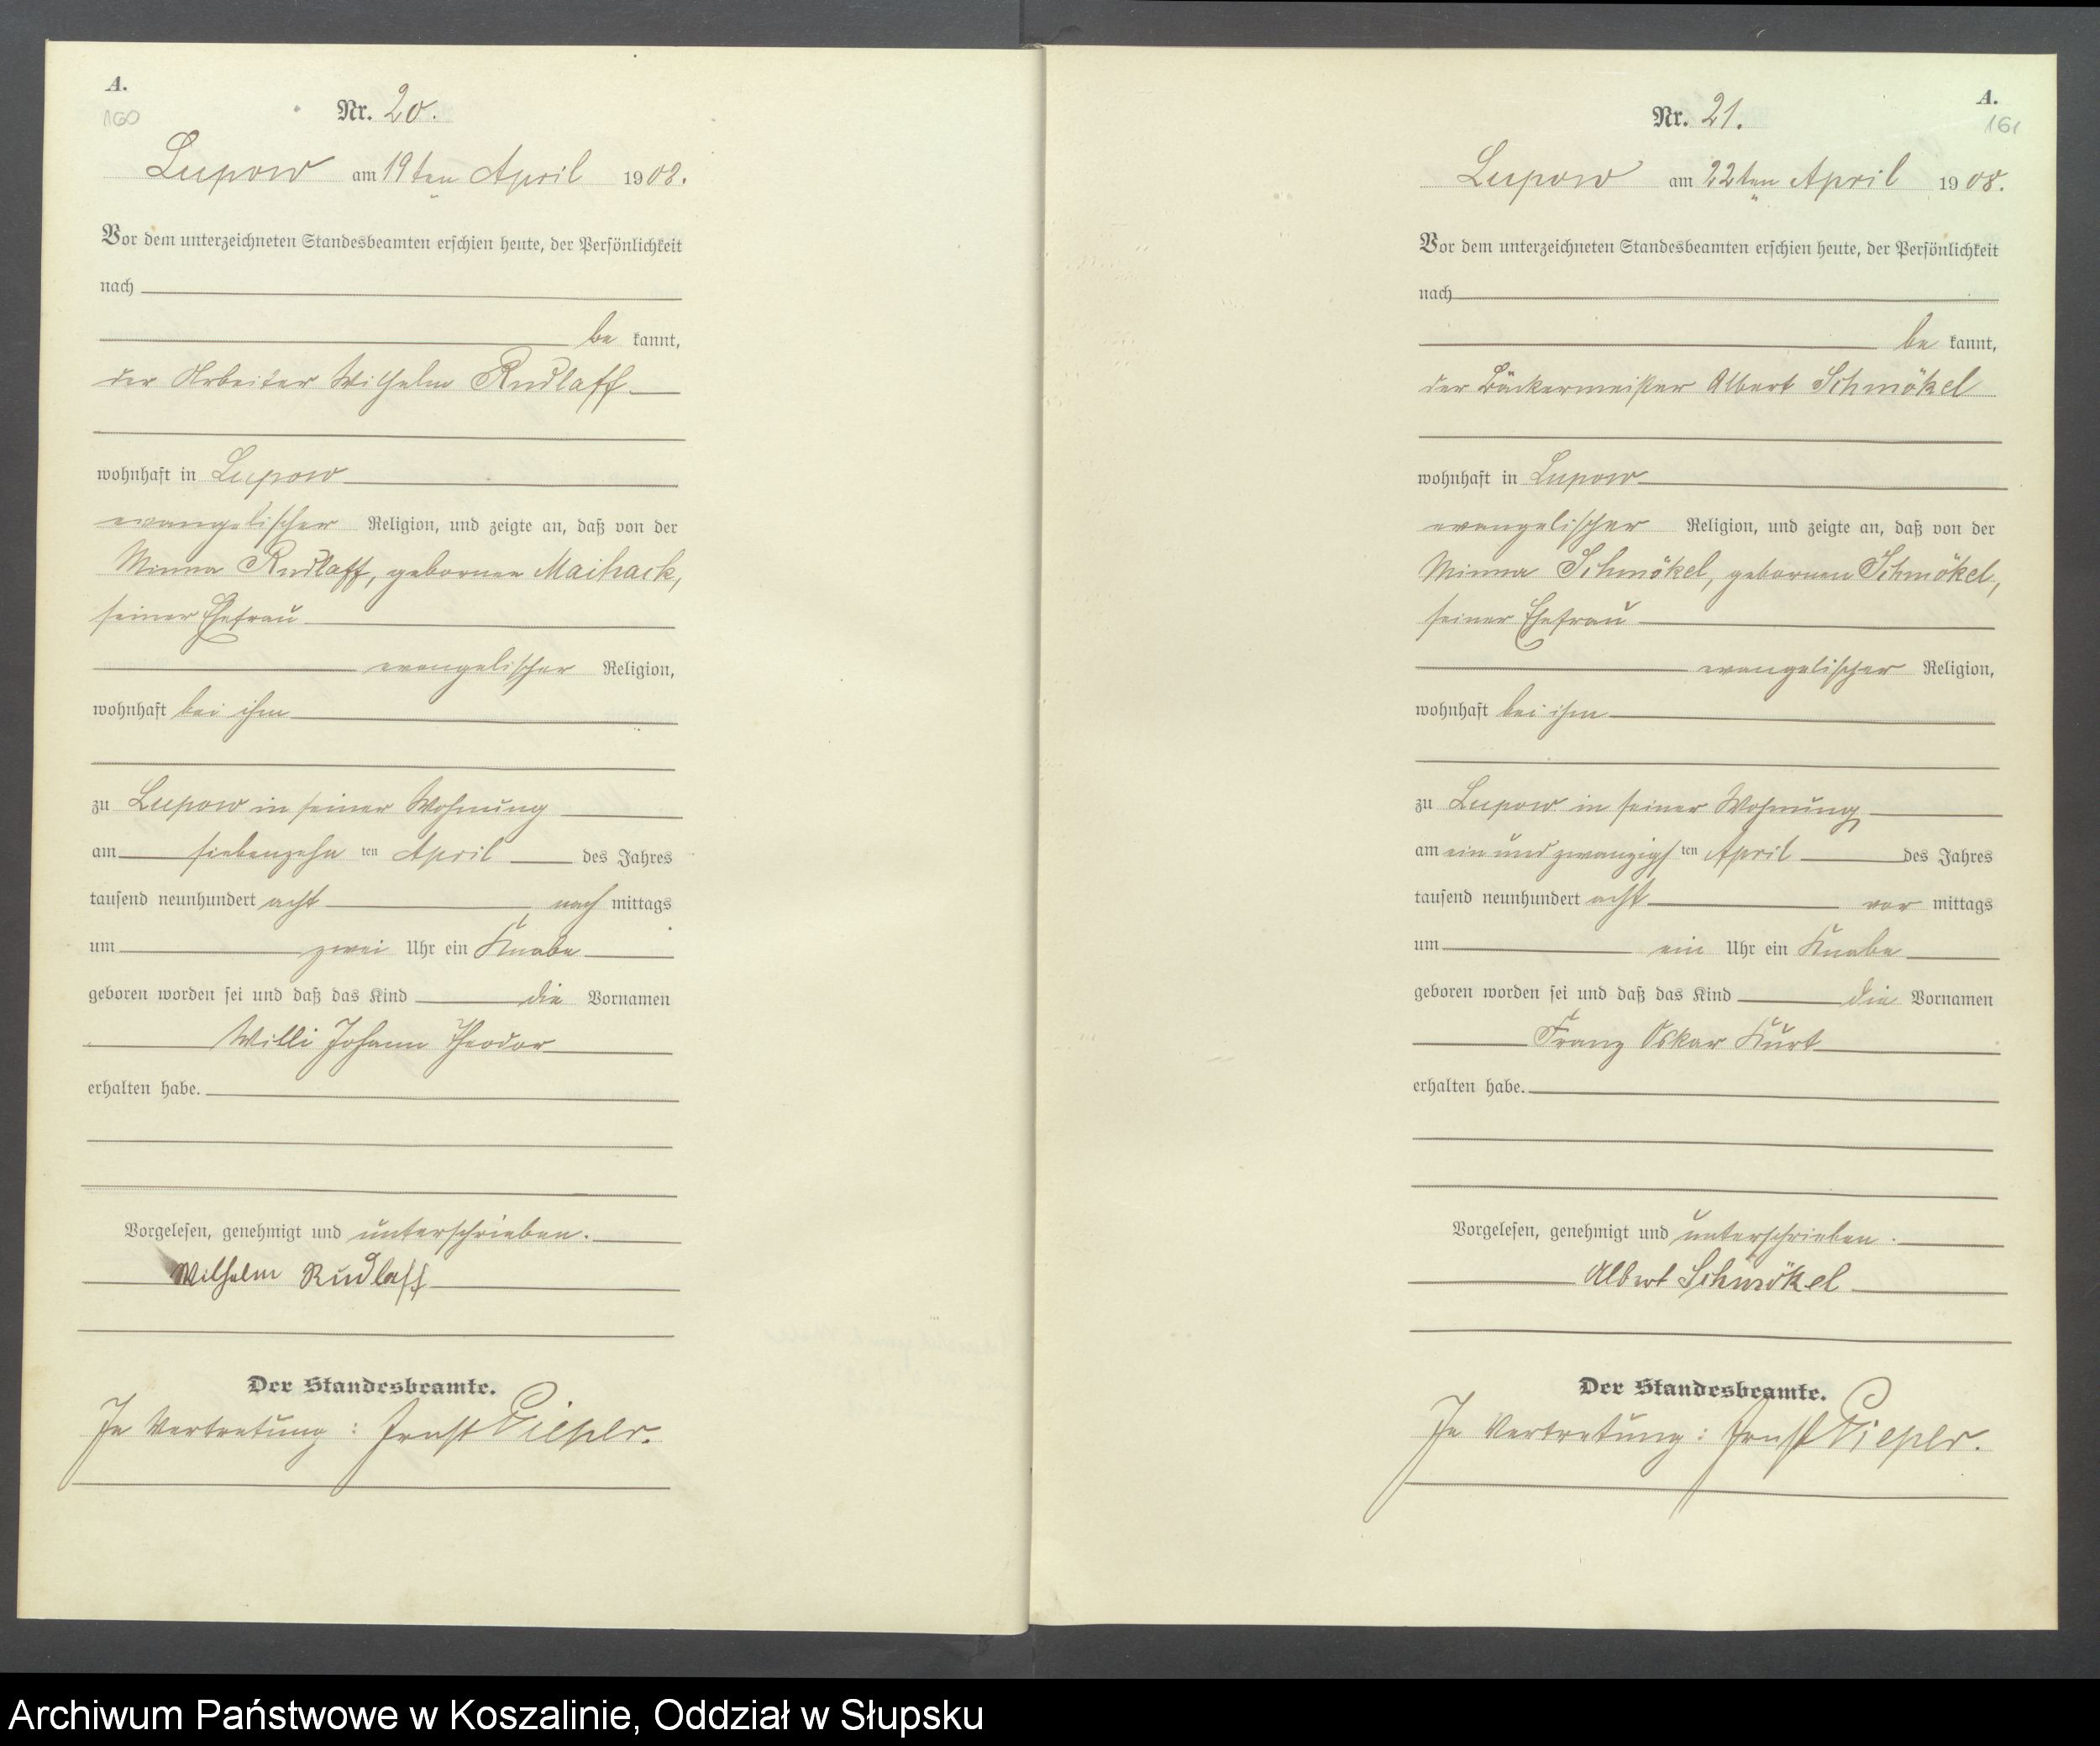 A.
160
Nr. 20.
Lupow am 19ten April 1908.
Vor dem unterzeichneten Standesbeamten erschien heute, der Persönlichkeit
nach
be kannt,
der Arbeiter Wilhelm Rudlaff
wohnhaft in Lupow
evangelischer Religion, und zeigte an, daß von der
Minna Rudlaff, geborenen Maihack,
seiner Ehefrau
evangelischer Religion,
wohnhaft bei ihm
zu Lupow in seiner Wohnung
am siebenzehn ten April des Jahres
tausend neunhundert acht nach mittags
um zwei Uhr ein Knabe
geboren worden sei und daß das Kind die Vornamen
Willi Johann Theodor
erhalten habe.
Vorgelesen, genehmigt und unterschrieben.
Wilhelm Rudlaff
Der Standesbeamte.
In Vertretung: Ernst Pieper.
A.
161
Nr. 21.
Lupow am 22ten April 1908.
Vor dem unterzeichneten Standesbeamten erschien heute, der Persönlichkeit
nach
be kannt,
der Bäckermeister Albert Schmökel
wohnhaft in Lupow
evangelischer Religion, und zeigte an, daß von der
Minna Schmökel, geborenen Schmökel,
seiner Ehefrau
evangelischer Religion,
wohnhaft bei ihm
zu Lupow in seiner Wohnung
am ein und zwanzigs ten April des Jahres
tausend neunhundert acht vor mittags
um ein Uhr ein Knabe
geboren worden sei und daß das Kind die Vornamen
Franz Oskar Kurt
erhalten habe.
Vorgelesen, genehmigt und unterschrieben.
Albert Schmökel
Der Standesbeamte.
In Vertretung: Ernst Pieper.
Archiwum Państwowe w Koszalinie, Oddział w Słupsku